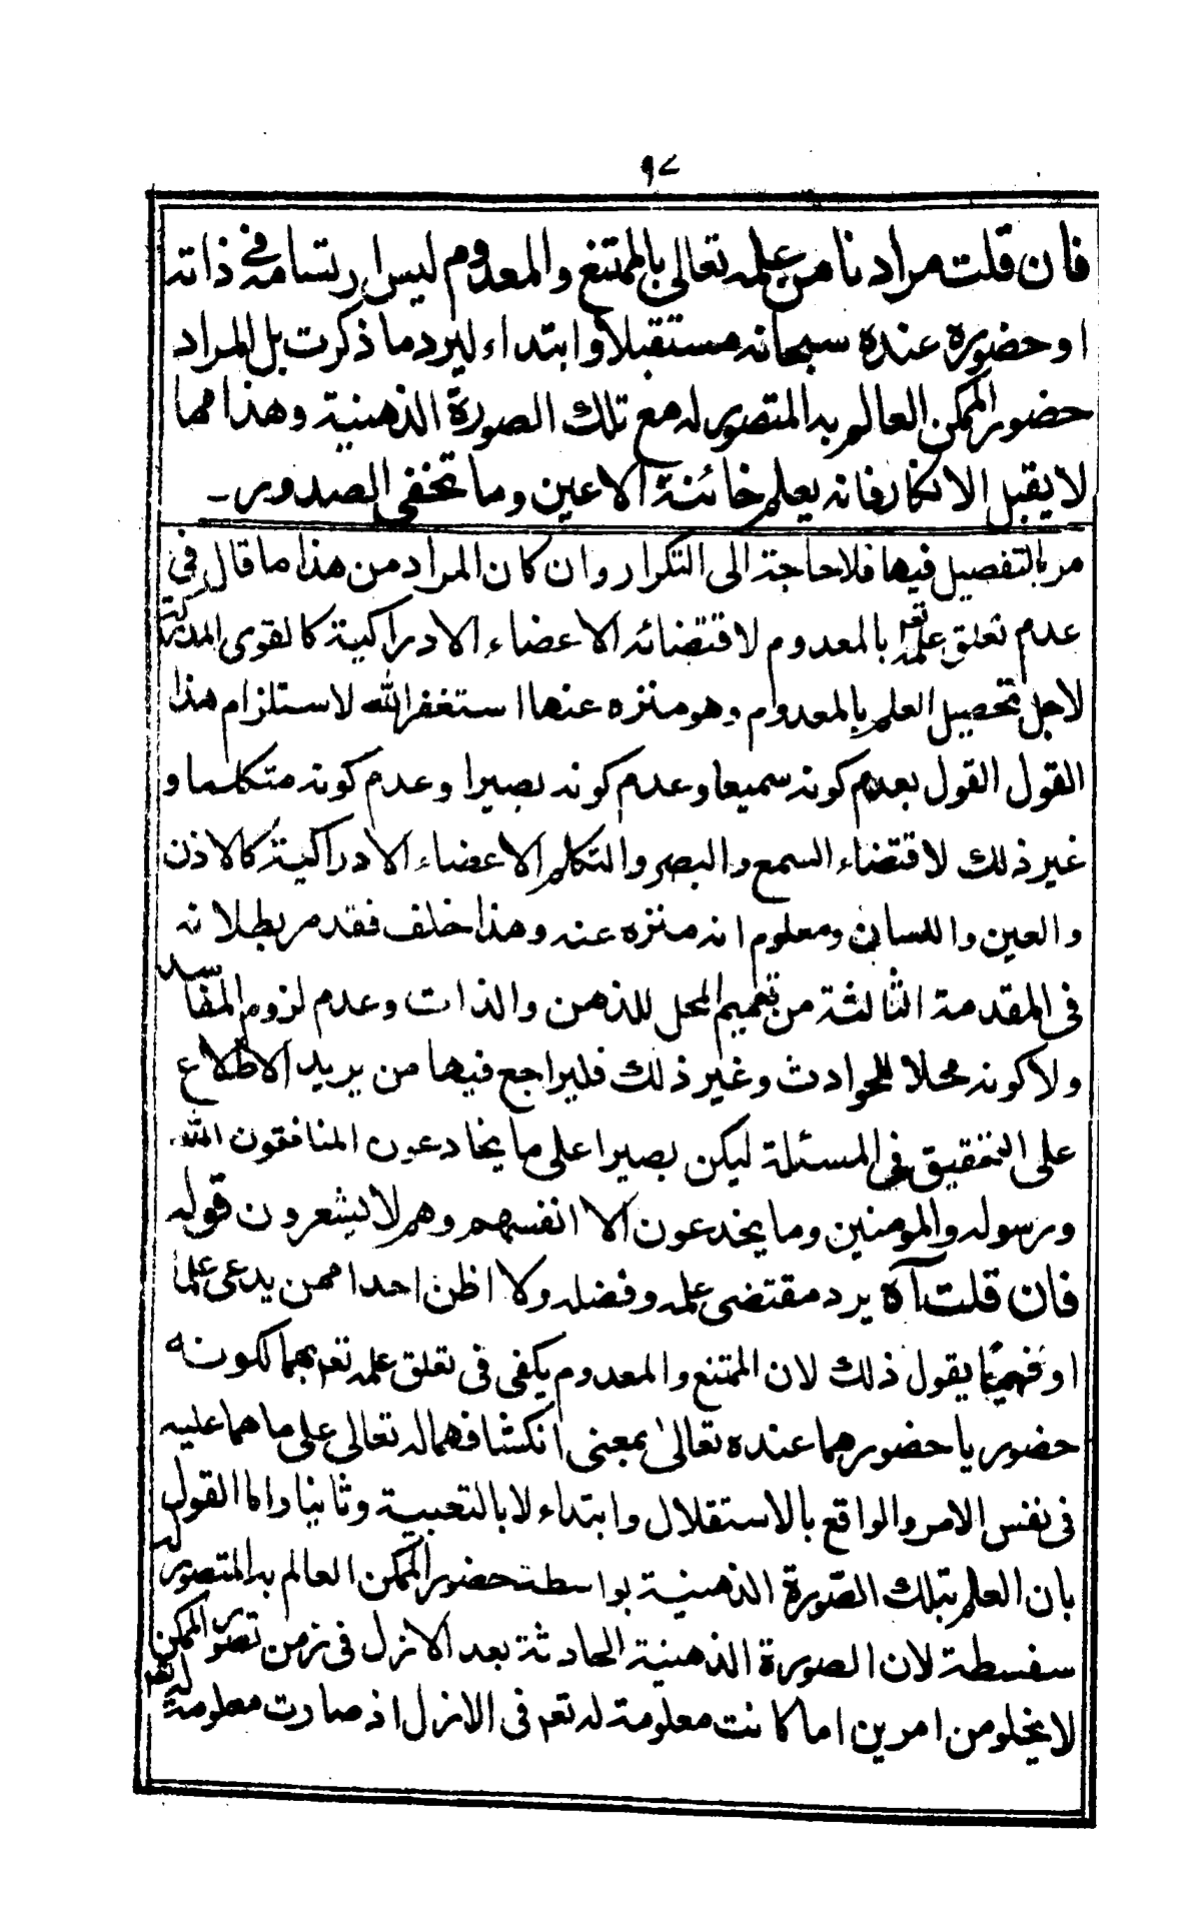 ٩٤
فان قلت مرادنا من علمه تعالى بالممتنع والمعدوم ليس ارتسامه في ذاته
او حضوره عنده سبحانه مستقبلا وابتداء ليرد ما ذكرت بل المراد
حضور الممكن العالم به المتصور له مع تلك الصورة الذهنية وهذا مما
لا يقبل الانكار فانه يعلم خائنة الاعين وما تخفى الصدور ـ
مر بالتفصيل فيها فلا حاجة الى التكرار وان كان المراد من هذا ما قال في
عدم تعلق علمه تعم بالمعدوم لاقتضائه الاعضاء الادراكية كالقوى المدركة
لاجل تحصيل العلم بالمعدوم وهو منزه عنها استغفر الله لاستلزام هذا
القول القول بعدم كونه سميعا وعدم كونه بصيرا وعدم كونه متكلما و
غير ذلك لاقتضاء السمع والبصر والتكلم الاعضاء الادراكية كالاذن
والعين واللسان ومعلوم انه منزه عنه وهذا خلف فقد مر بطلانه
فى المقدمة الثالثة من تعميم المحل للذهن والذات وعدم لزوم المفاسد
ولا كونه محلا للحوادث وغير ذلك فليراجع فيها من يريد الاطلاع
على التحقيق فى المسئلة ليكن بصيرا على ما يخادعون المنافقون الله
ورسوله والمومنين وما يخدعون الا انفسهم وهم لا يشعرون قوله
فان قلت آه يرد مقتضى علمه وفضله ولا اظن احدا ممن يدعى علما
او فهما يقول ذلك لان الممتنع والمعدوم يكفى فى تعلق علمه تعم بهما لكونه
حضوريا حضورهما عنده تعالى بمعنى انكشافهما له تعالى على ما هما عليه
فى نفس الامر والواقع بالاستقلال وابتداء لا بالتعبية وثانيا واما القول
بان العلم بتلك الصورة الذهنية بواسطة حضور الممكن العالم به المتصور له
سفسطة لان الصورة الذهنية الحادثة بعد الازل فى زمن تصور الممكن
لا يخلو من امرين اما كانت معلومة له تعم فى الازل اذ صارت معلومة له تعم